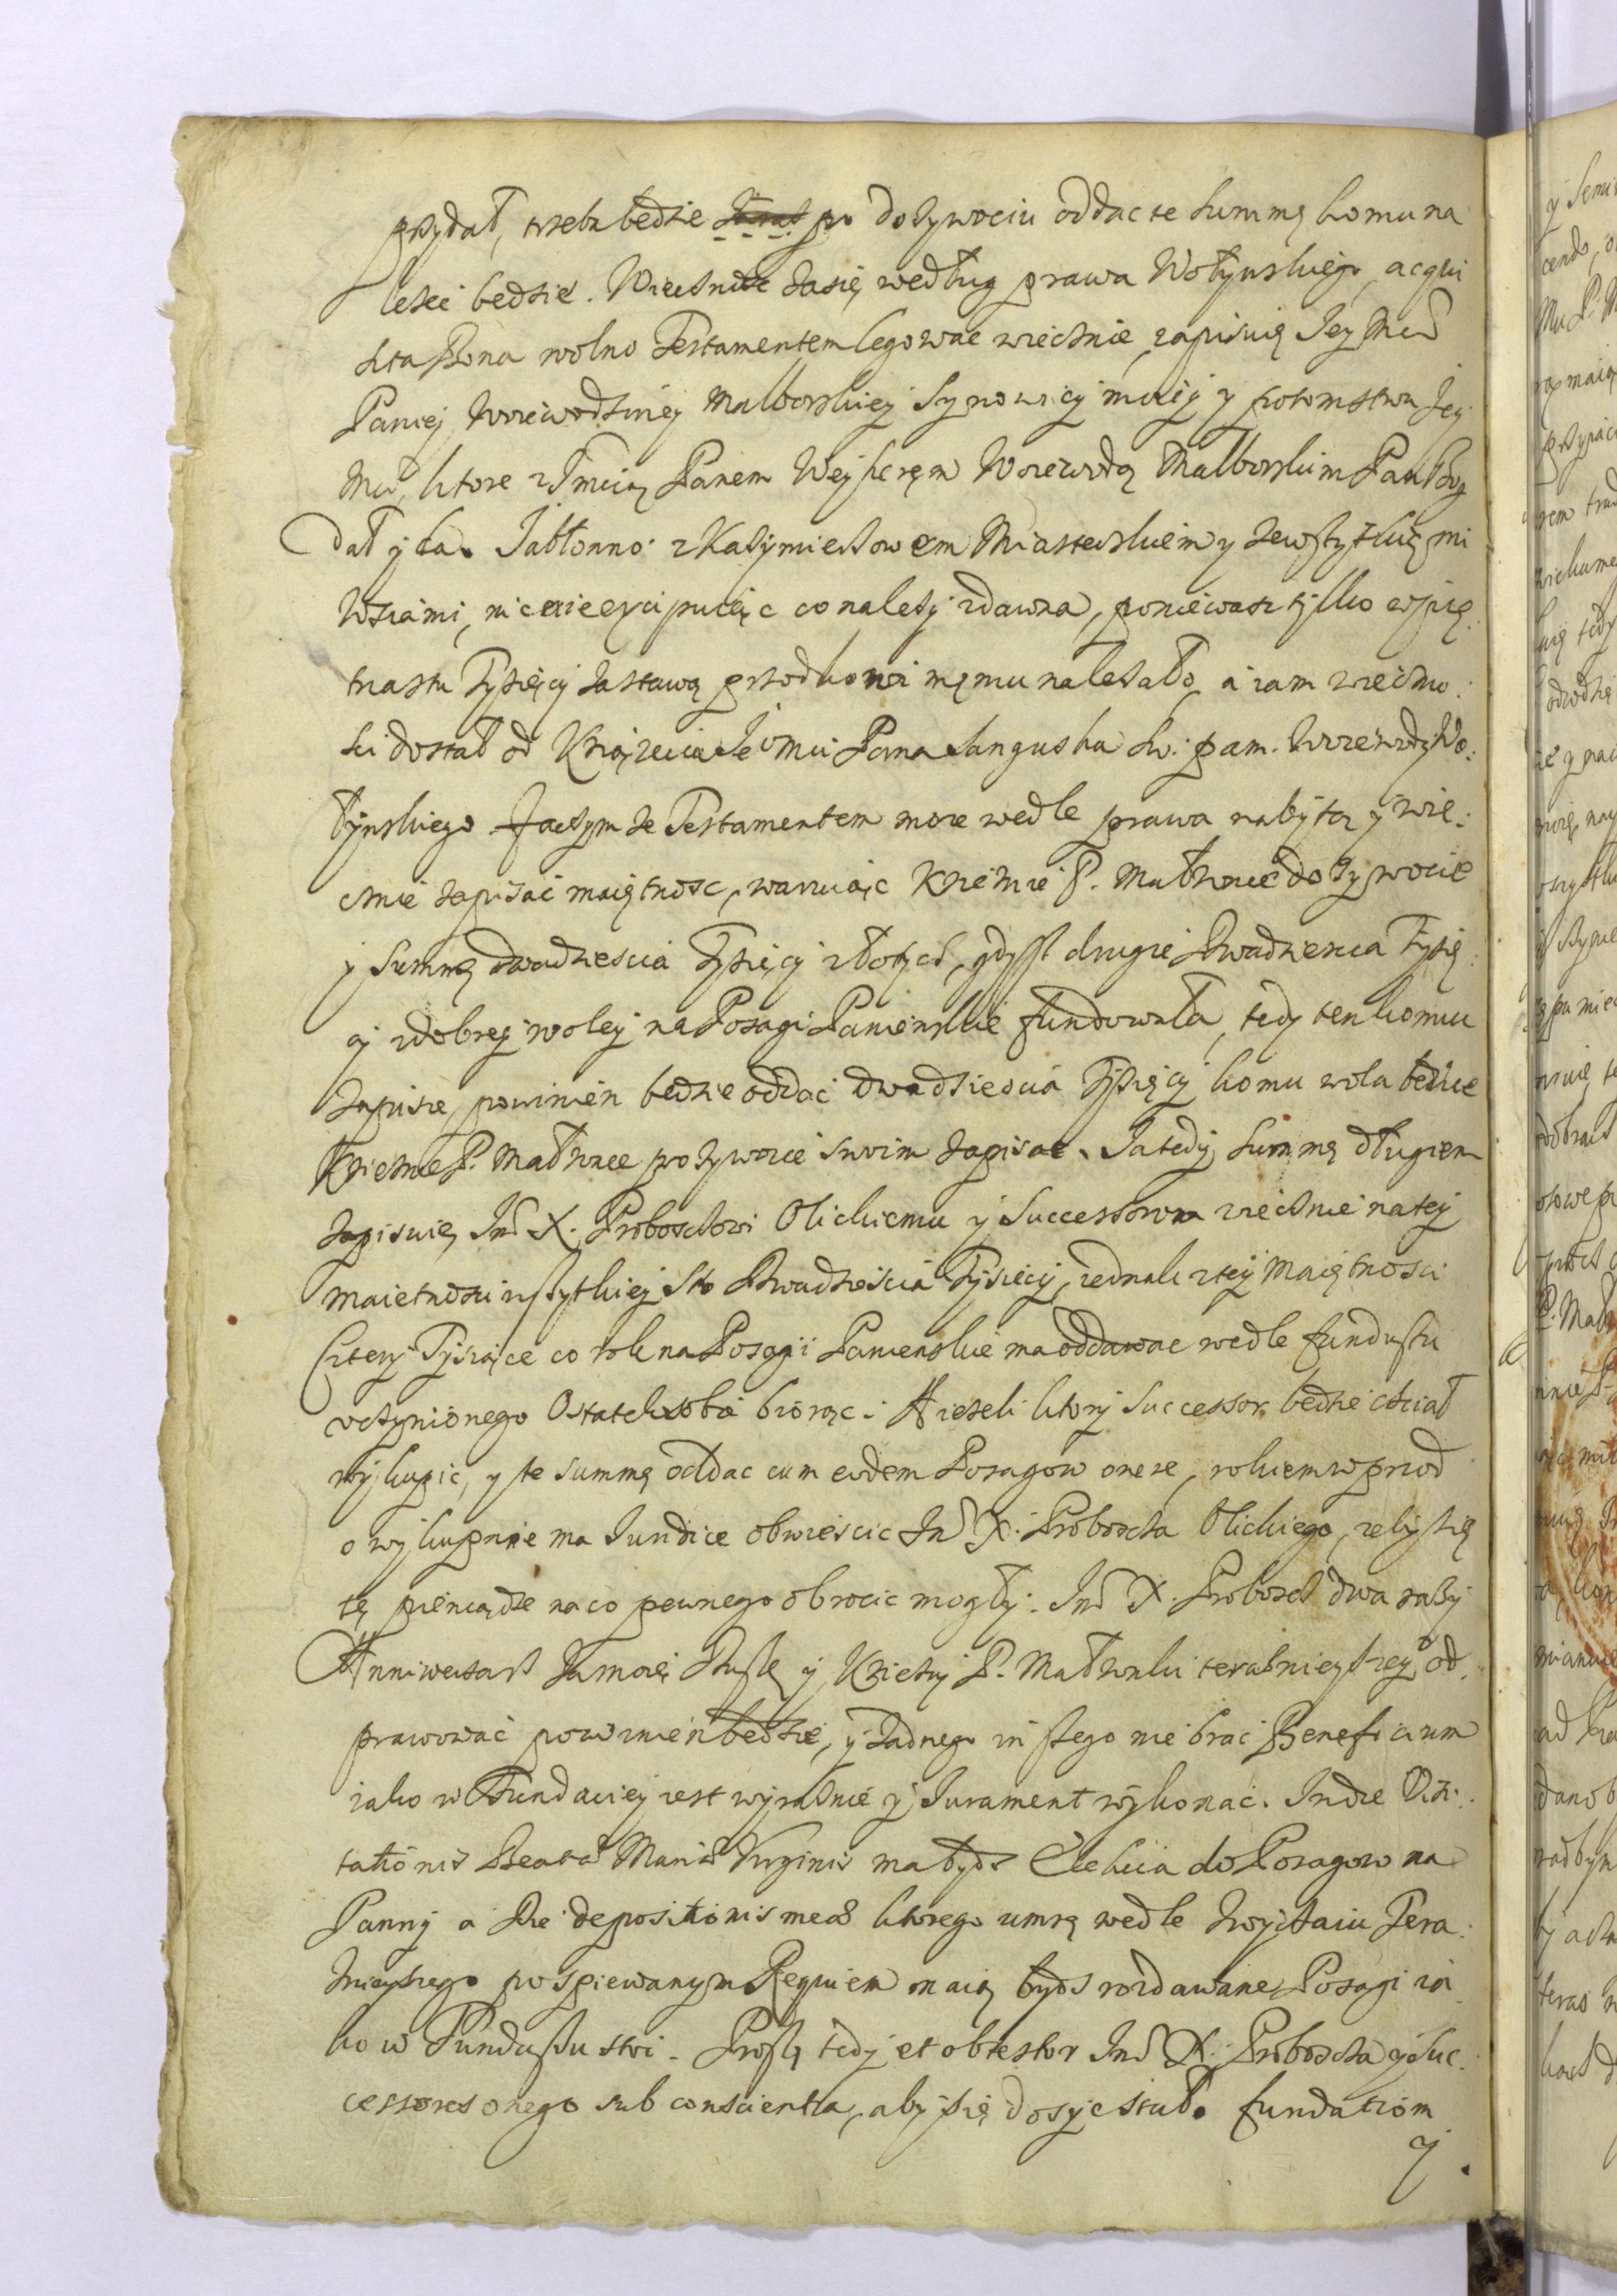 przydał, trzeba będzie po dozywociu oddac te summę komu na
lezec będzie. Wieczność zasię według prawa Wołynskiego, acqui
sita Bona wolno Testamentem legować wiecznie, zapisuię Jey Mci
Paniey Woiewodziney Malborskiey Synowicy moiey y potomstwu Jey
Mci, ktore z Jmcią Panem Weyherem Woiewodą Malborskim Pan Bog
dał y da. Jabłonno z Kazimierzowem Miasteczkiem y zewszytkiemi
Wsiami, nic nie excipuiąc co nalezy zdawna, poniewasz tylko w pię
tnastu Tysięcy zastawą przodkowi memu nalezało, a iam wieczno
sci dostał od Książęcia Jeomci Pana Sanguszka św. pam. Woiewody Wo
łynskiego zaczym ze Testamentem moze wedle prawa nabytą y wie
cznie zapisać maiętnosc, waruiąc Xięznie P. Małzonce dozywocie
y summę dwadziescia Tysięcy złotych, gdysz drugie Dwadziescia Tysię
cy z dobrey woley na Posagi Panienskie fundowała, tedy ten komu
zapisze, powinien będzie oddać dwadziescia Tysięcy komu wola będzie
Xięznie P. Małzonce po zywocie swoim zapisac. Ja tedy summę długiem
zapisuię Jmć X. Proboszczowi Olickiemu y Successorom wiecznie na tey
maietnosci wszytkiey Sto Dwadziescia Tysięcy, iednak z tey Maiętnosci
Cztery Tysiące co rok na Posagi Panienskie ma oddawac wedle funduszu
uczynionego Ostatek sobie biorąc. A iezeli ktory Successor będzie chciał
wykupic, y te summę oddac cum eodem Posagow onere, rokiem w przod
o wykupnie ma Juridice obwiescic Jmć X. Proboszcza Olickiego, zeby się
te pieniądze na co pewnego obrocic mogły. Jmć X. Proboszcz dwa razy
Anniwersarz za moię Duszę y Xięzny P. Małzonki teraznieyszey od
prawować powinien będzie, y zadnego inszego nie brać Beneficium
iako w Fundaciey iest wyraznie y Jurament wykonać. In die Visi
tationis Beatæ Mariæ Virginis ma bydz Elekcia do Posagow na
Panny a Die depositionis meæ ktorego umrę wedle zwyczaiu Tera
znieyszego po spiewanym Requiem maią bydz rozdawane Posagi ia
ko w Funduszu stoi. Proszę tedy et obtestor Jmć X. Proboszcza y Suc
cessores onego sub conscientia, aby się dosyc stało fundatiom
y